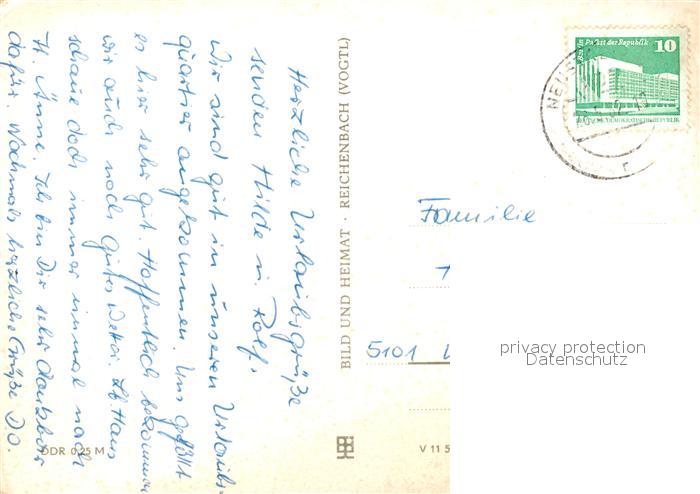 Herzliche Urlaubsgrüße
senden Hilde u. Rolf.
Wir sind gut in unserem Urlaubs-
quartier angekommen. Uns gefällt
es hier sehr gut. Hoffentlich bekommen
wir auch noch gutes Wetter. Lb. Hans
schaue doch immer einmal nach
Ich bin Dir sehr dankbar
dafür. Nochmals herzliche Grüße D.O.
DDR 0,25 M
BILD UND HEIMAT · REICHENBACH (VOGTL)
V 11 5
Palast der Republik 10
DEUTSCHE DEMOKRATISCHE REPUBLIK
Familie
5101
privacy protection
Datenschutz